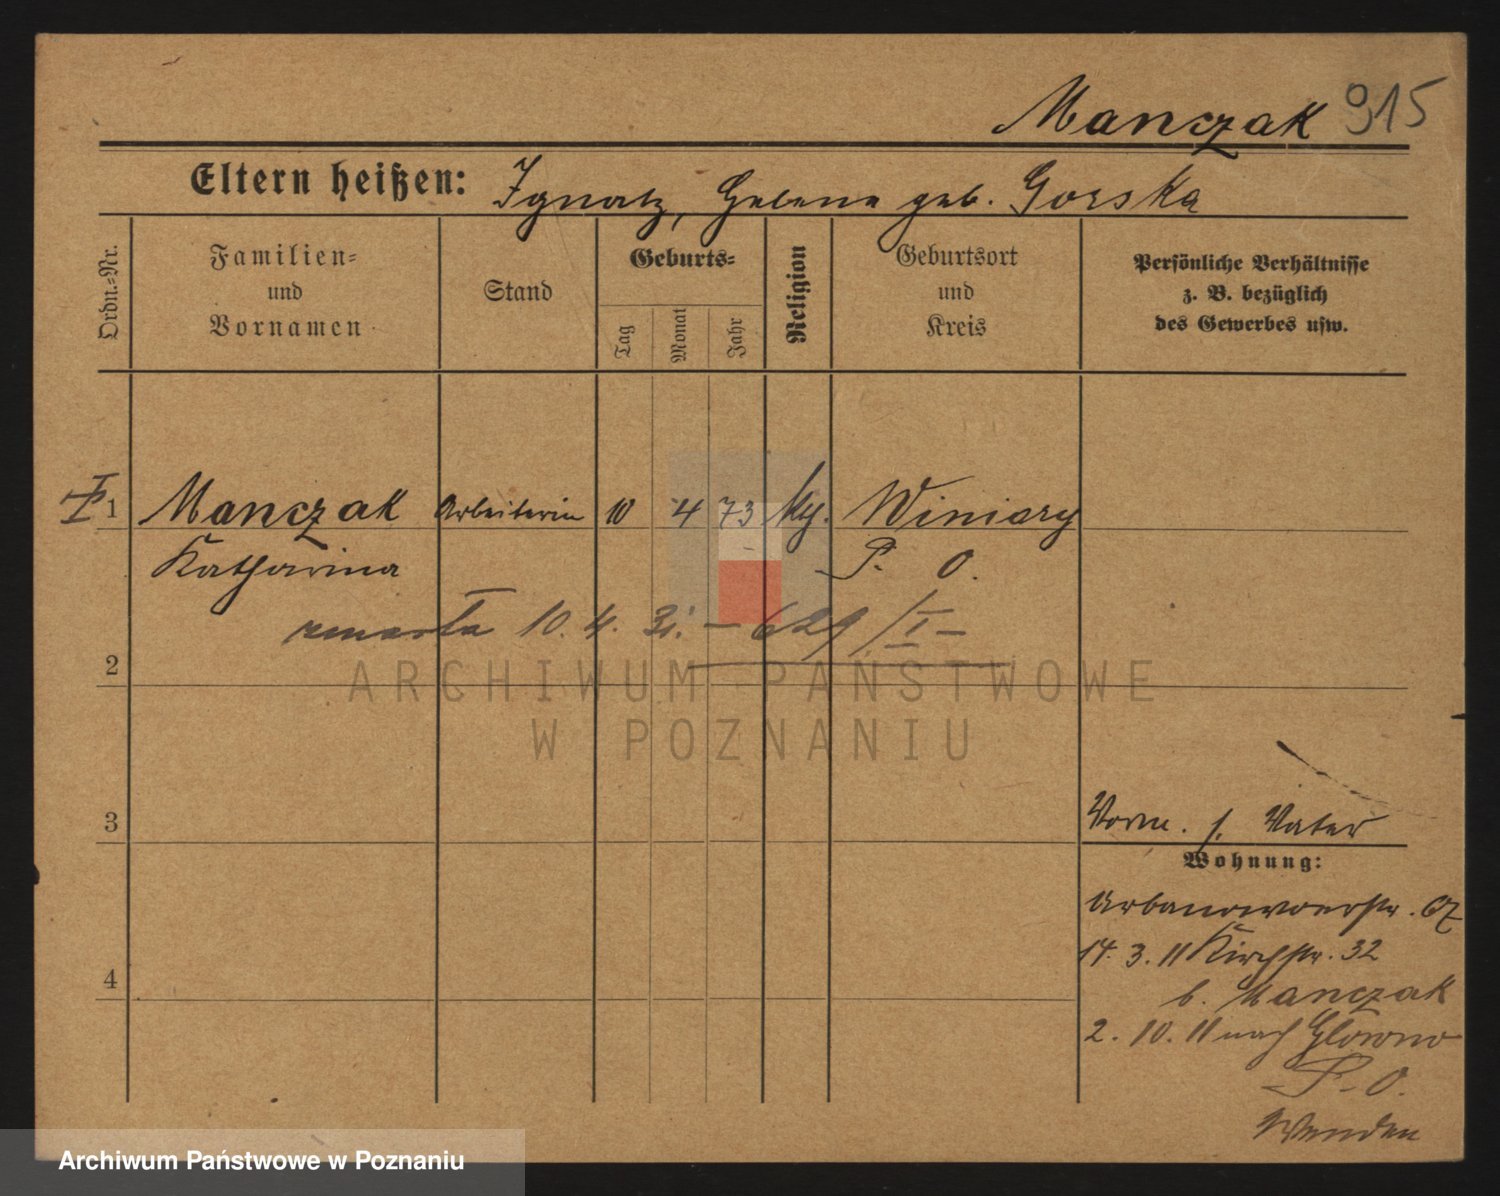 Manczak 915
Eltern heißen: Ignatz, Helene geb. Gorska
Ordn.-Nr.
Familien-
und
Vornamen
Stand
Geburts-
Tag
Monat
Jahr
Religion
Geburtsort
und
Kreis
Persönliche Verhältnisse
z. B. bezüglich
des Gewerbes usw.
I
1 Manczak Arbeiterin 10 4 73 Winiary
Katharina P. O.
zmarła 10. 4. 31. – 629/I –
2
ARCHIWUM PAŃSTWOWE
W POZNANIU
3
Vorm. s. Vater
Wohnung:
14. 3. 11 Kirchstr. 32
4
b. Manczak
2. 10. 11 nach Główno
P. O.
Wenden
Archiwum Państwowe w Poznaniu